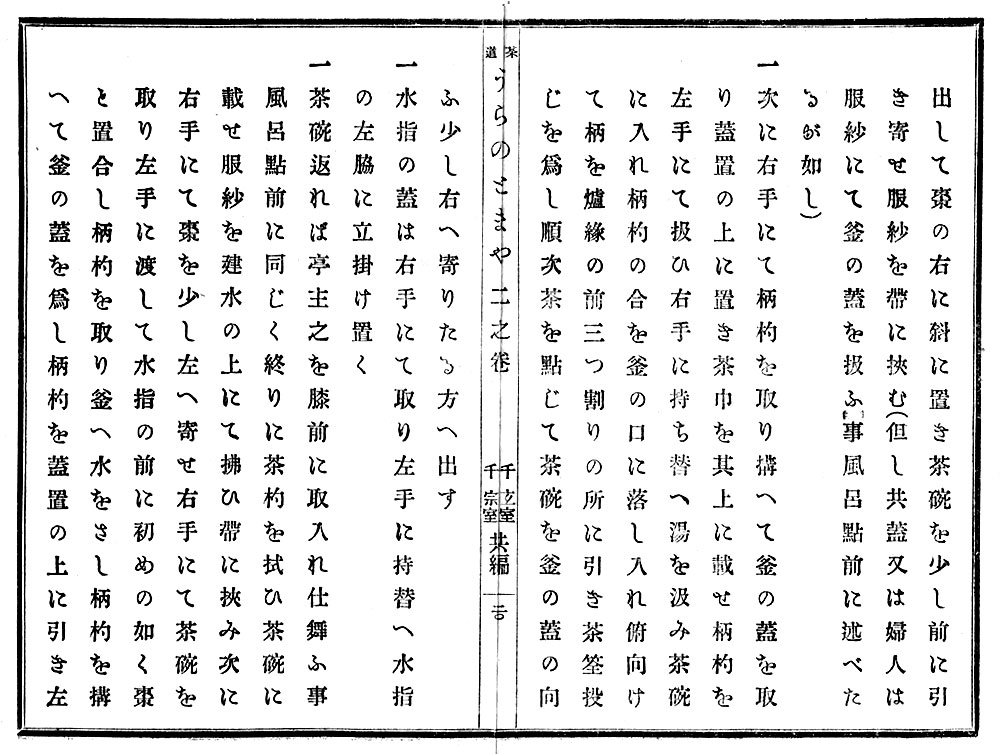 出して棗の右に斜に置き茶碗を少し前に引
き寄せ服紗を帶に挾む(但し共蓋又は婦人は
服紗にて釜の蓋を扱ふ事風呂點前に述べた
るが如し)
一次に右手にて柄杓を取り搆へて釜の蓋を取
り蓋置の上に置き茶巾を其上に載せ柄杓を
左手にて扱ひ右手に持ち替へ湯を汲み茶碗
に入れ柄杓の合を釜の口に落し入れ俯向け
て柄を爐緣の前三つ割りの所に引き茶筌投
じを爲し順次茶を點じて茶碗を釜の蓋の向
茶道
うらのとまや 二之卷
千玄室
千宗室
共編
二〇
ふ少し右へ寄りたる方へ出す
一水指の蓋は右手にて取り左手に持替へ水指
の左脇に立掛け置く
一茶碗返れば亭主之を膝前に取入れ仕舞ふ事
風呂點前に同じく終りに茶杓を拭ひ茶碗に
載せ服紗を建水の上にて拂ひ帶に挾み次に
右手にて棗を少し左へ寄せ右手にて茶碗を
取り左手に渡して水指の前に初めの如く棗
と置合し柄杓を取り釜へ水をさし柄杓を搆
へて釜の蓋を爲し柄杓を蓋置の上に引き左